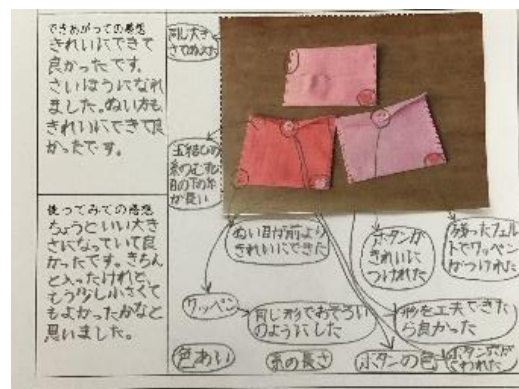 できあがっての感想
きれいにできて
良かったです。
さいほうになれ
ました。ぬい方も
きれいにできて良
かったです。
使ってみての感想
ちょうどいい大き
さになっていて良
かったです。きちん
と入ったけれど、
もう少し小さくて
もよかったかなと
思いました。
同じ大き
さでぬえた
玉結びの
糸のむすび
目の下の糸
が長い
ぬい目が前より
きれいにできた
ボタンが
きれいに
つけれた
残ったフェル
トでワッペン
がつけれた
ワッペン
同じ形でおそろい
のようにした
形を工夫できた
ら良かった
色あい
糸の長さ
ボタンの色
ボタン穴が